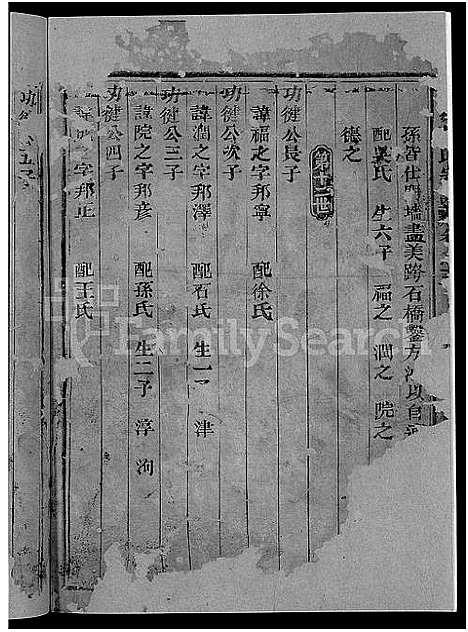 孫皆仕門墻盡美跨石橋鑿方以自
配吳氏 生六子 福之 潤之 院之
德之
功健公長子
諱福之字邦寧 配徐氏
功健公次子
諱潤之字邦澤 配石氏 生一子 津
功健公三子
諱院之字邦彥 配孫氏 生二子 淳 洵
功健公四子
之字邦正 配王氏
功 五子
FamilySearch